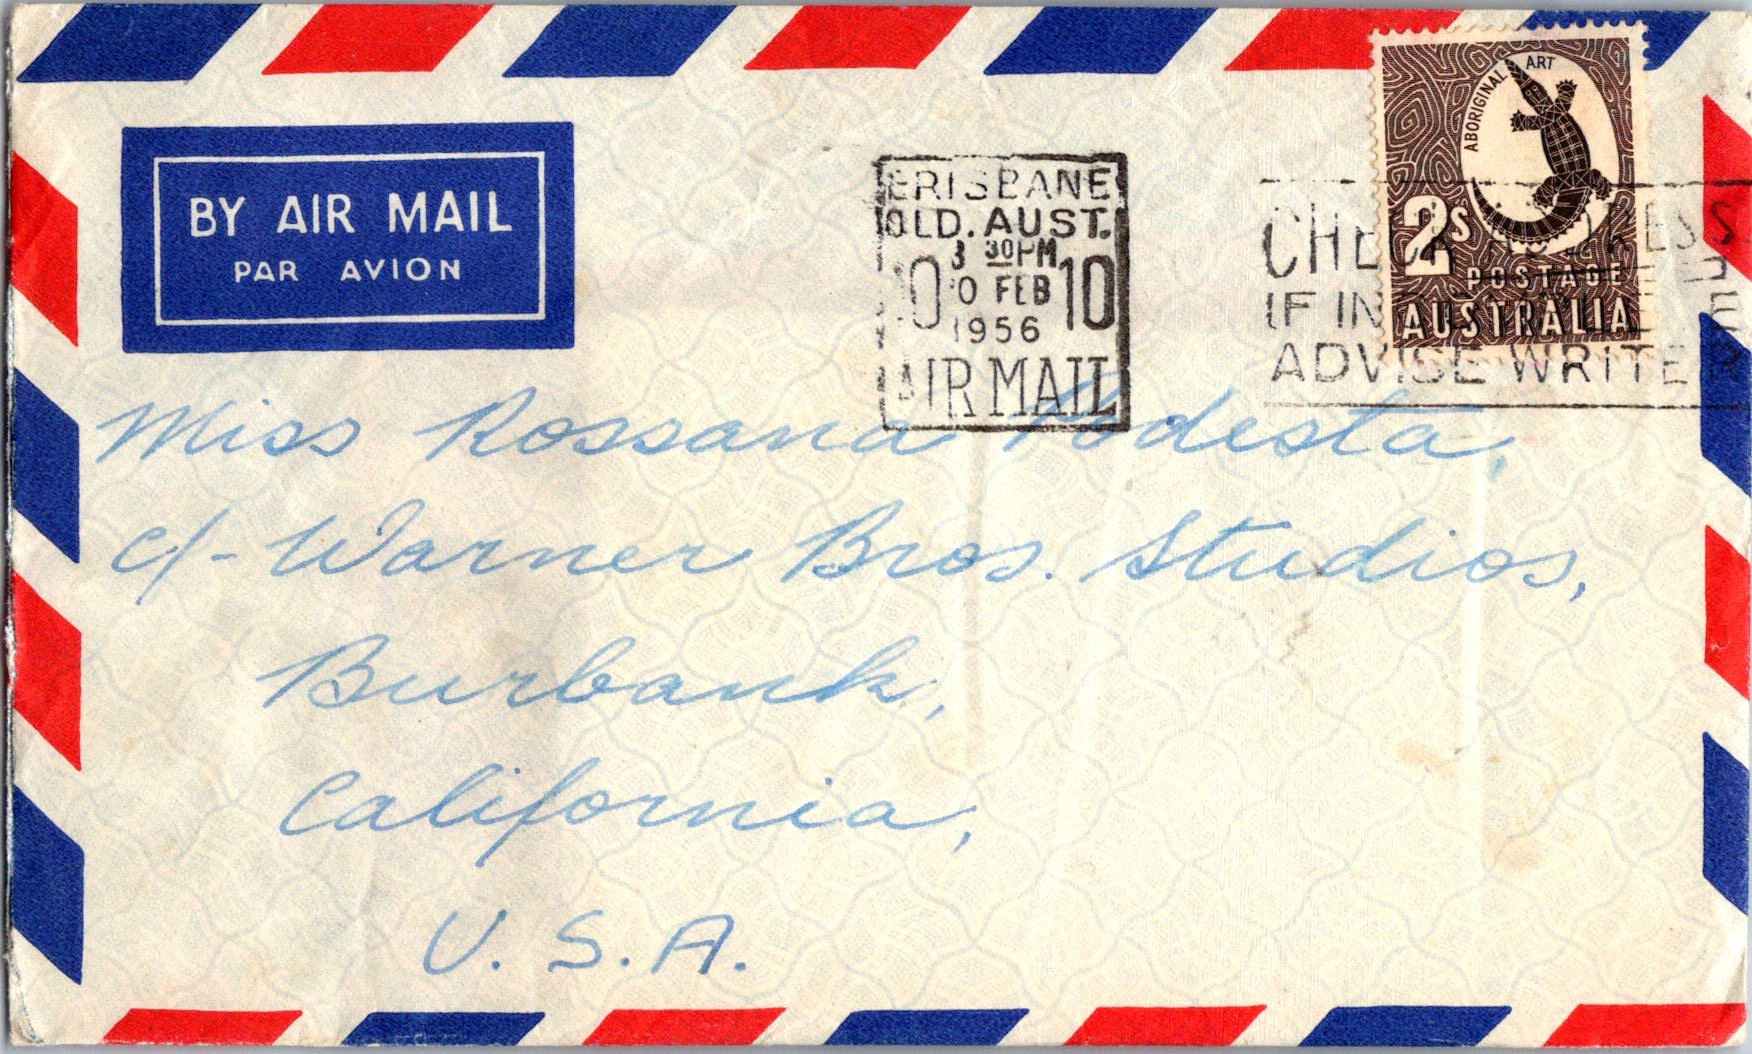 BY AIR MAIL
PAR AVION
BRISBANE
QLD. AUST.
3 30PM
10 FEB 10
1956
AIR MAIL
ABORIGINAL ART
2s
POSTAGE
AUSTRALIA
CHECK ADDRESS
IF IN
ADVISE WRITER
Miss Rossana Podesta,
c/- Warner Bros. Studios,
Burbank,
California,
U.S.A.